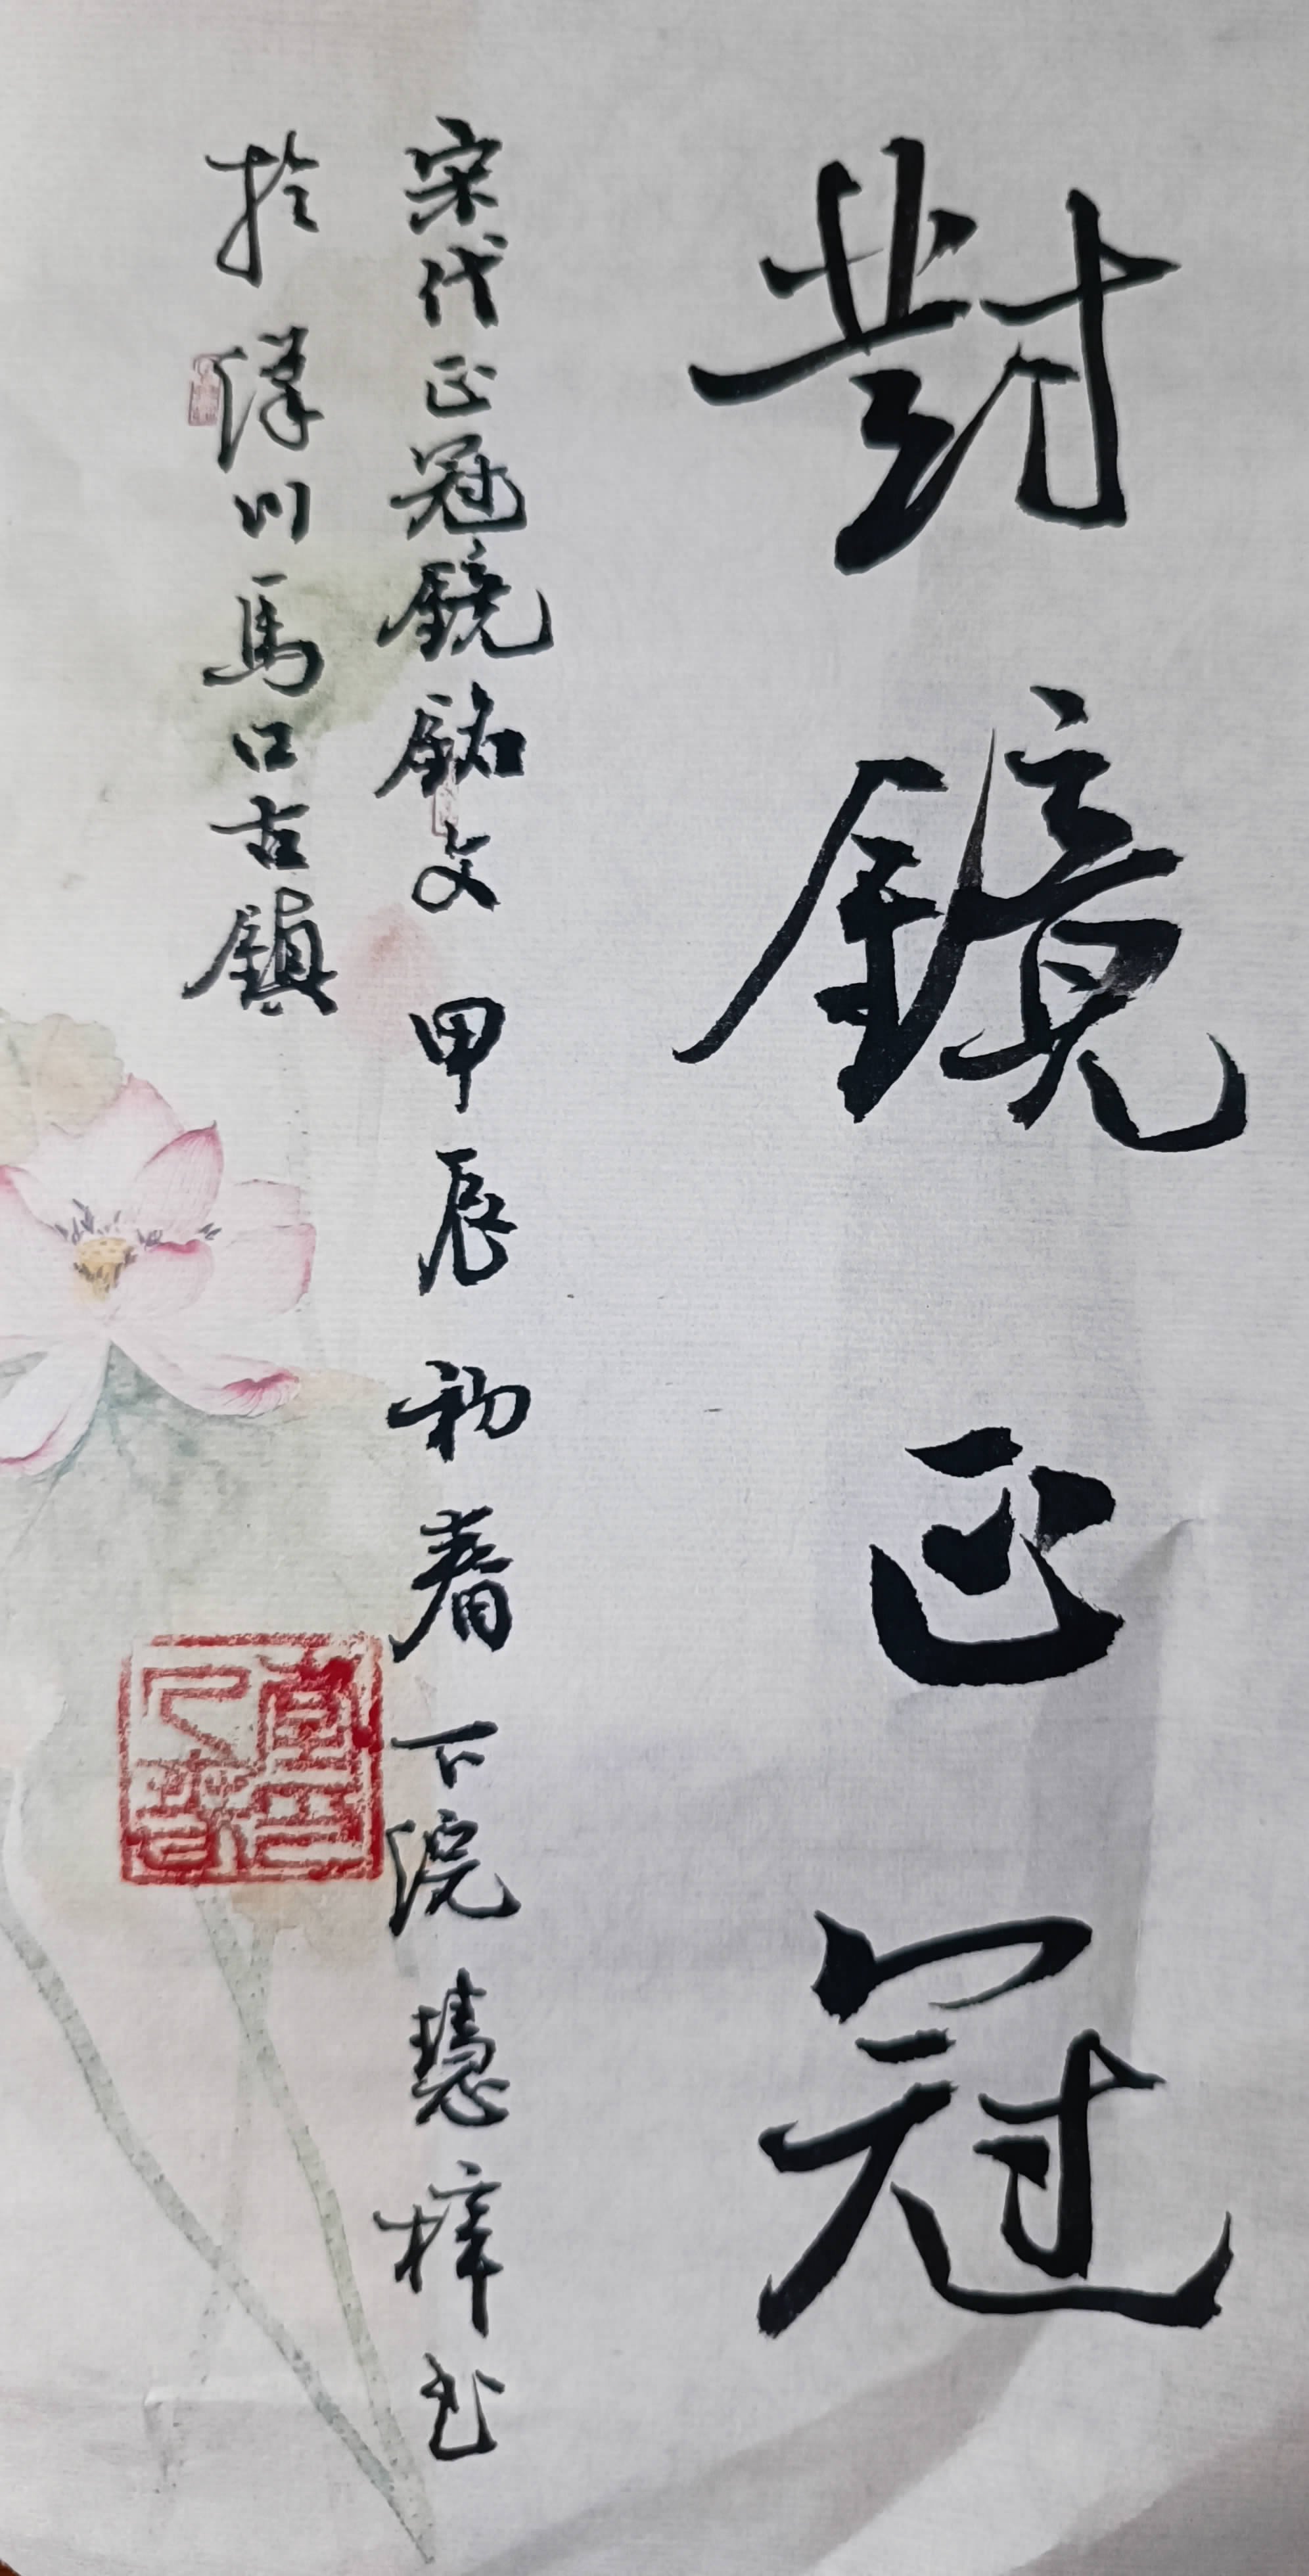 對鏡正冠
宋代正冠鏡銘文甲辰初春下院慧梓书
於漢川馬口古鎮